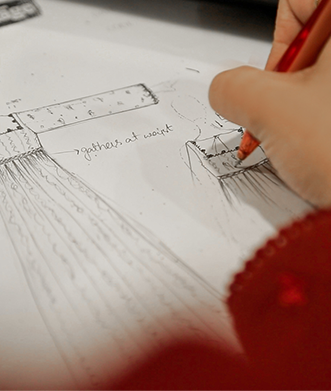 gathers at waist